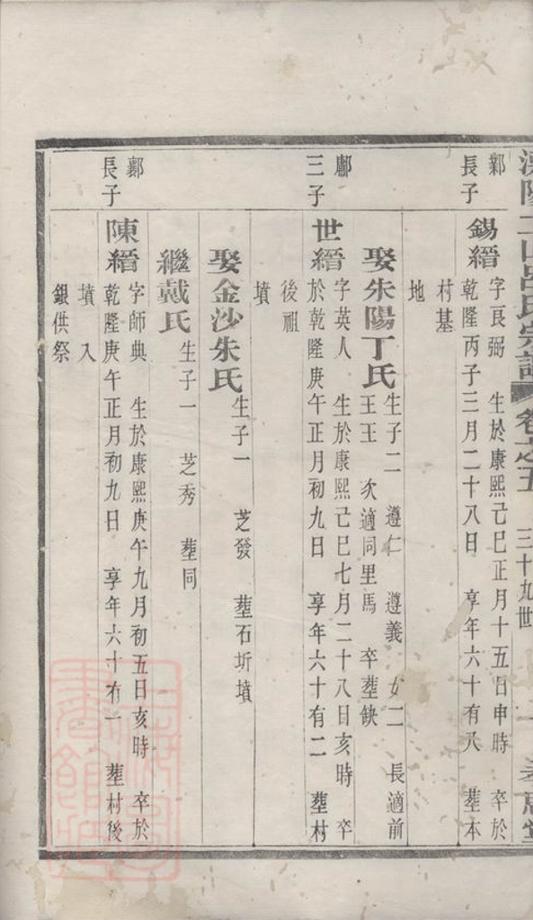 呂氏宗譜 卷之五 三十九世
鄴長子
錫縉 字良弼 生於康熙己巳正月十五日申時 卒於
乾隆丙子三月二十八日 享年六十有八 塟本
村基
地
娶朱陽丁氏 生子二 遵仁 遵義 女二 長適前
王王 次適同里馬 卒塟缺
三子
世縉 字英人 生於康熙己巳七月二十八日亥時 卒
於乾隆庚午正月初九日 享年六十有二 塟村
後祖
墳
娶金沙朱氏 生子一 芝發 塟石圻墳
繼戴氏 生子一 芝秀 塟同
鄴長子
陳縉 字師典 生於康熙庚午九月初五日亥時 卒於
乾隆庚午正月初九日 享年六十有一 塟村後
墳入
銀供祭